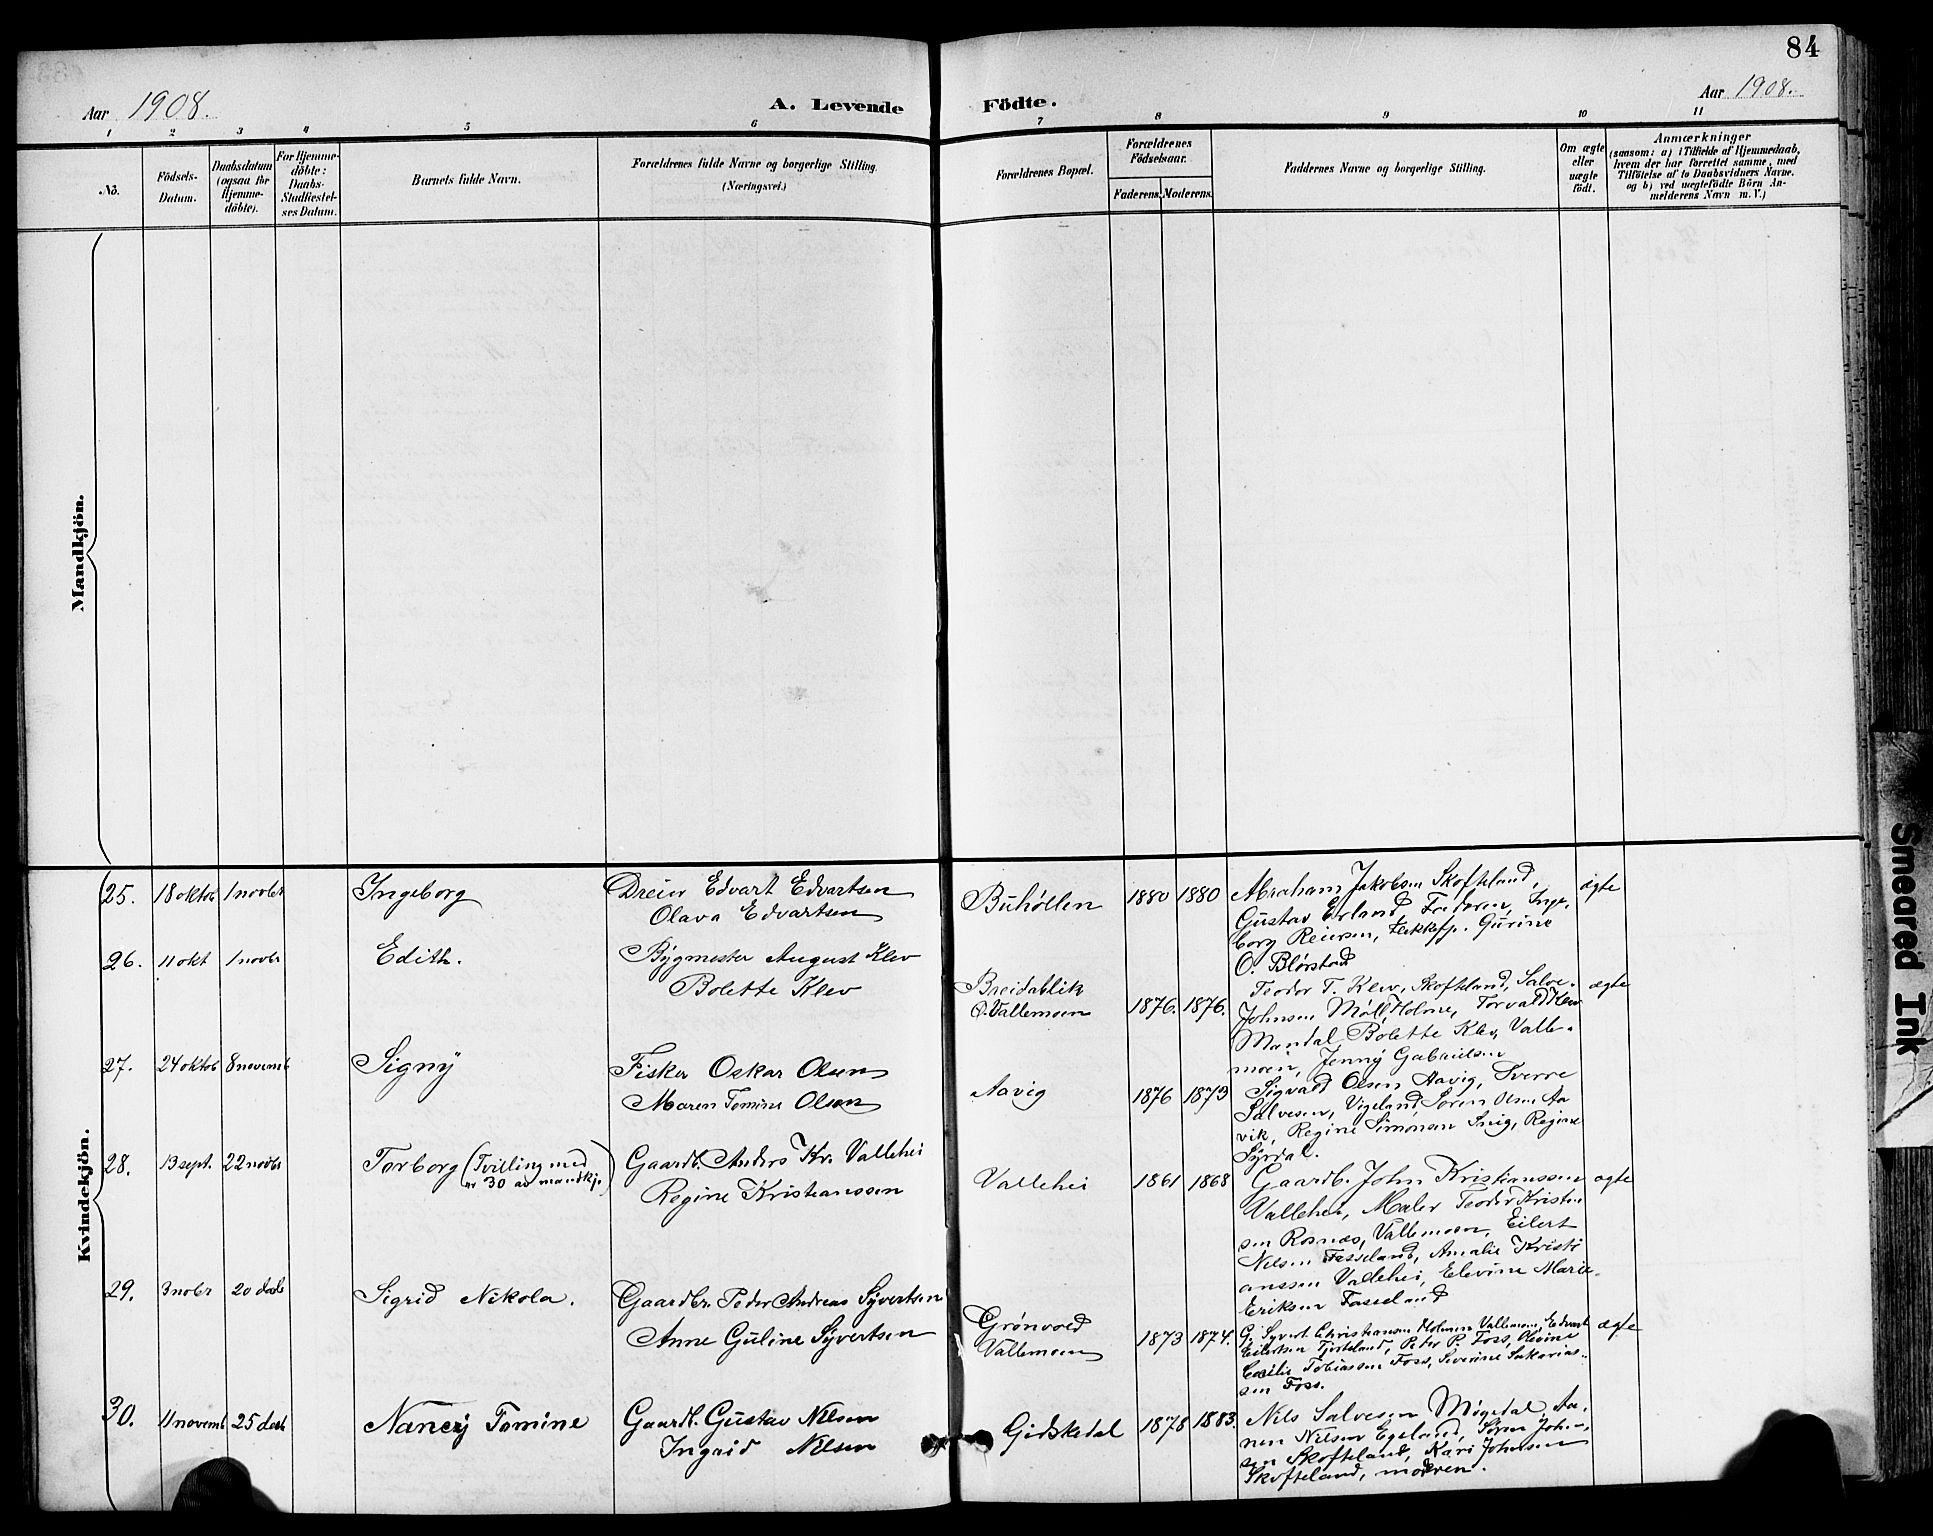 84
Aar 1908.
A. Levende Födte.
Aar 1908.
1 2 3 4 5 6 7 8 9 10 11
No.
Födsels-
Datum.
Daabsdatum
(ogsaa for
Hjemme-
döbte).
For Hjemme-
döbte:
Daabs-
Stadfæstel-
ses Datum.
Barnets fulde Navn.
Forældrenes fulde Navne og borgerlige Stilling.
(Næringsvei.)
Forældrenes Bopæl.
Forældrenes
Födselsaar.
Faderens. Moderens.
Faddernes Navne og borgerlige Stilling.
Om ægte
eller
uægte
födt.
Anmærkninger
(saasom: a) i Tilfælde af Hjemmedaab,
hvem der har forrettet samme, med
Tilföielse af to Daabsvidners Navne,
og b) ved uægtefödte Börn An-
melderens Navn m. V.)
Mandkjön.
Kvindekjön.
25. 18 oktob 1 novbr Ingeborg
Dreier Edvart Edvartsen
Olava Edvartsen
Buhøllen 1880 1880
Abraham Jakobsen Skofteland,
Gustav Erland Inge-
borg Reiersen, Gurine
O. Blørstad
ægte
26. 11 okt 1 novbr Edith.
Bygmester August Klev
Bolette Klev
Breidablik
Vallemoen 1876. 1876.
Teodor T. Klev, Skofteland, Salve
Johnsen Møll, Holme, Torvald Klev
Mandal Bolette Klev, Valle-
moen, Jenny Gabrielsen
ægte
27. 24 oktob 8 novemb Signy
Fisker Oskar Olsen
Maren Tomine Olsen
Aavig 1876 1873
Sigvald Olsen Aavig, Sverre
Salvesen, Vigeland, Søren Olsen Aa
vik, Regine Simonsen Snig, Regine
Syrdal.
28. 13 sept. 22 novbr Torborg (Tvilling med
nr 30 av mandkj.)
Gaardb. Anders Kr. Vallehei
Regine Kristianssen
Vallehei 1861 1868
Gaardb. John Kristianssen
Vallehei, Maler Teodor Kristen
sen Rosnæs, Vallemoen, Eilert
Nilsen Fasseland, Amalie Kristi
anssen Vallehei, Elevine Marie
Eriksen Fasseland
ægte
29. 3 nobr 20 desb Sigrid Nikola.
Gaardbr. Peder Andreas Syvertsen
Anne Guline Syvertsen
Grønvold
Vallemoen 1873 1874.
G. Syvert Christiansen Holmen Vallemoen, Edvart
Eilertsen Tjorteland, Peter P. Foss, Olevine
Cecilie Tobiassen Foss, Severine Sakarias-
sen Foss.
ægte
30. 11 novemb 25 desb Nancy Tomine
Gaardb. Gustav Nilsen
Ingrid Nilsen
Gidskedal 1878 1883.
Nils Salvesen Møgedal, Aa-
nen Nilsen Egeland, Søren John-
sen Skofteland, Kari Johnsen
Skofteland, moderen.
Smeared Ink